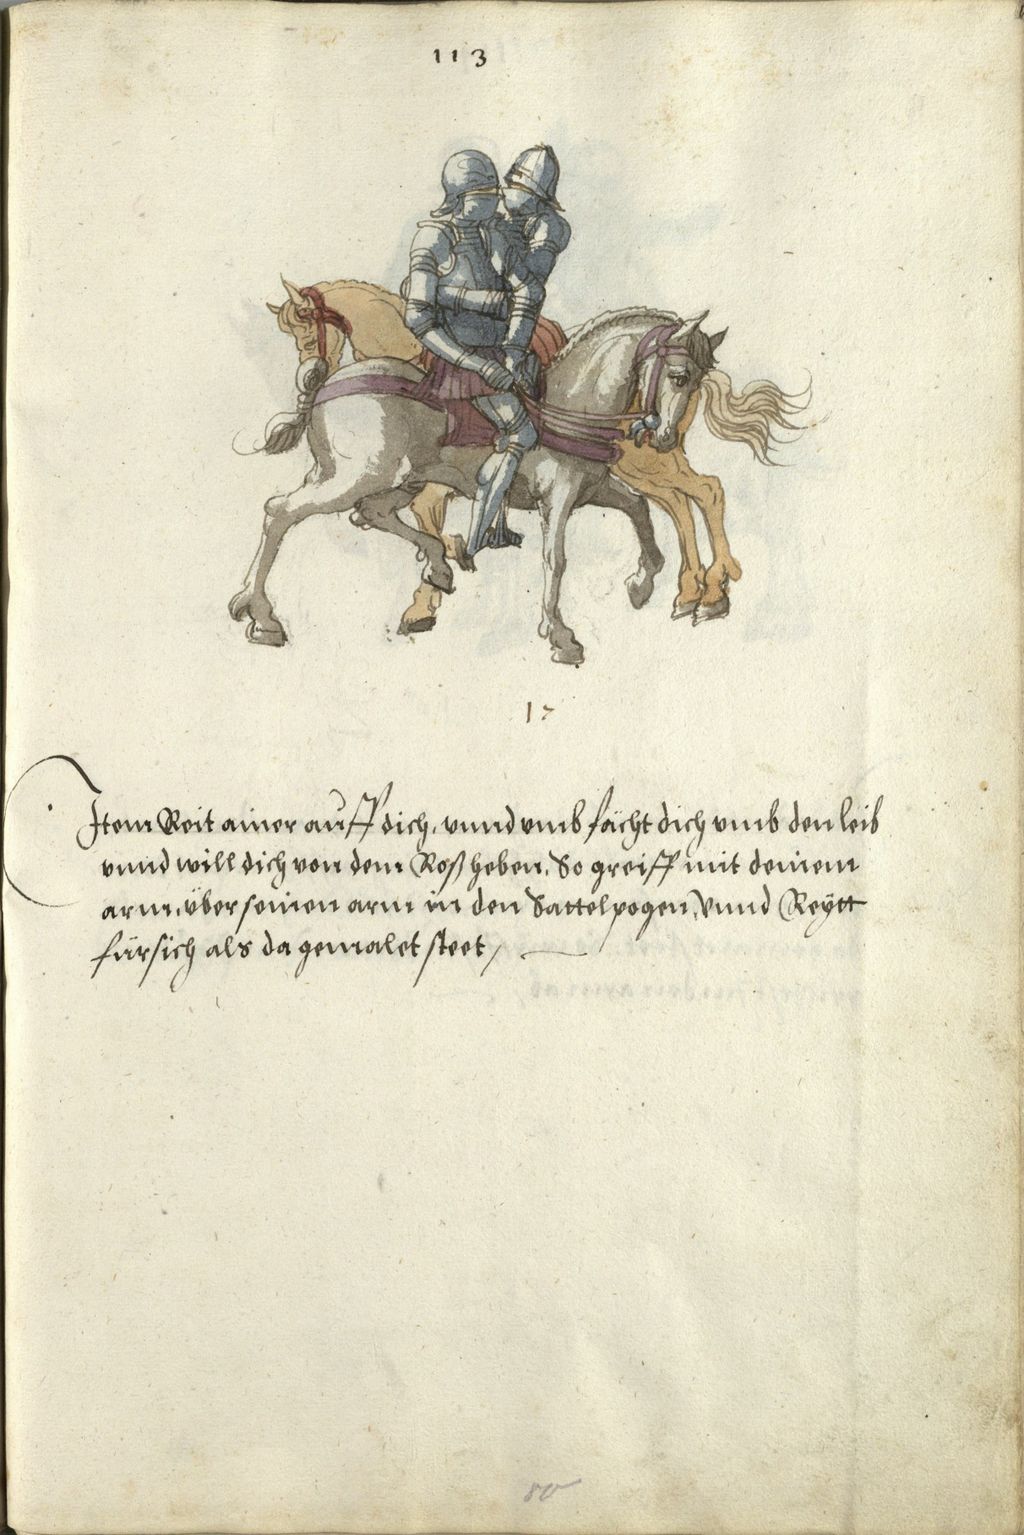 113
17
Item Reit ainer auff dich, vnnd vmbfächt dich vmb den leib
vnnd will dich von dem Roß heben, So greiff mit deinem
arm, über seinen arm in den Sattelpogen, Vnnd Reytt
fürsich als da gemalet steet,
80